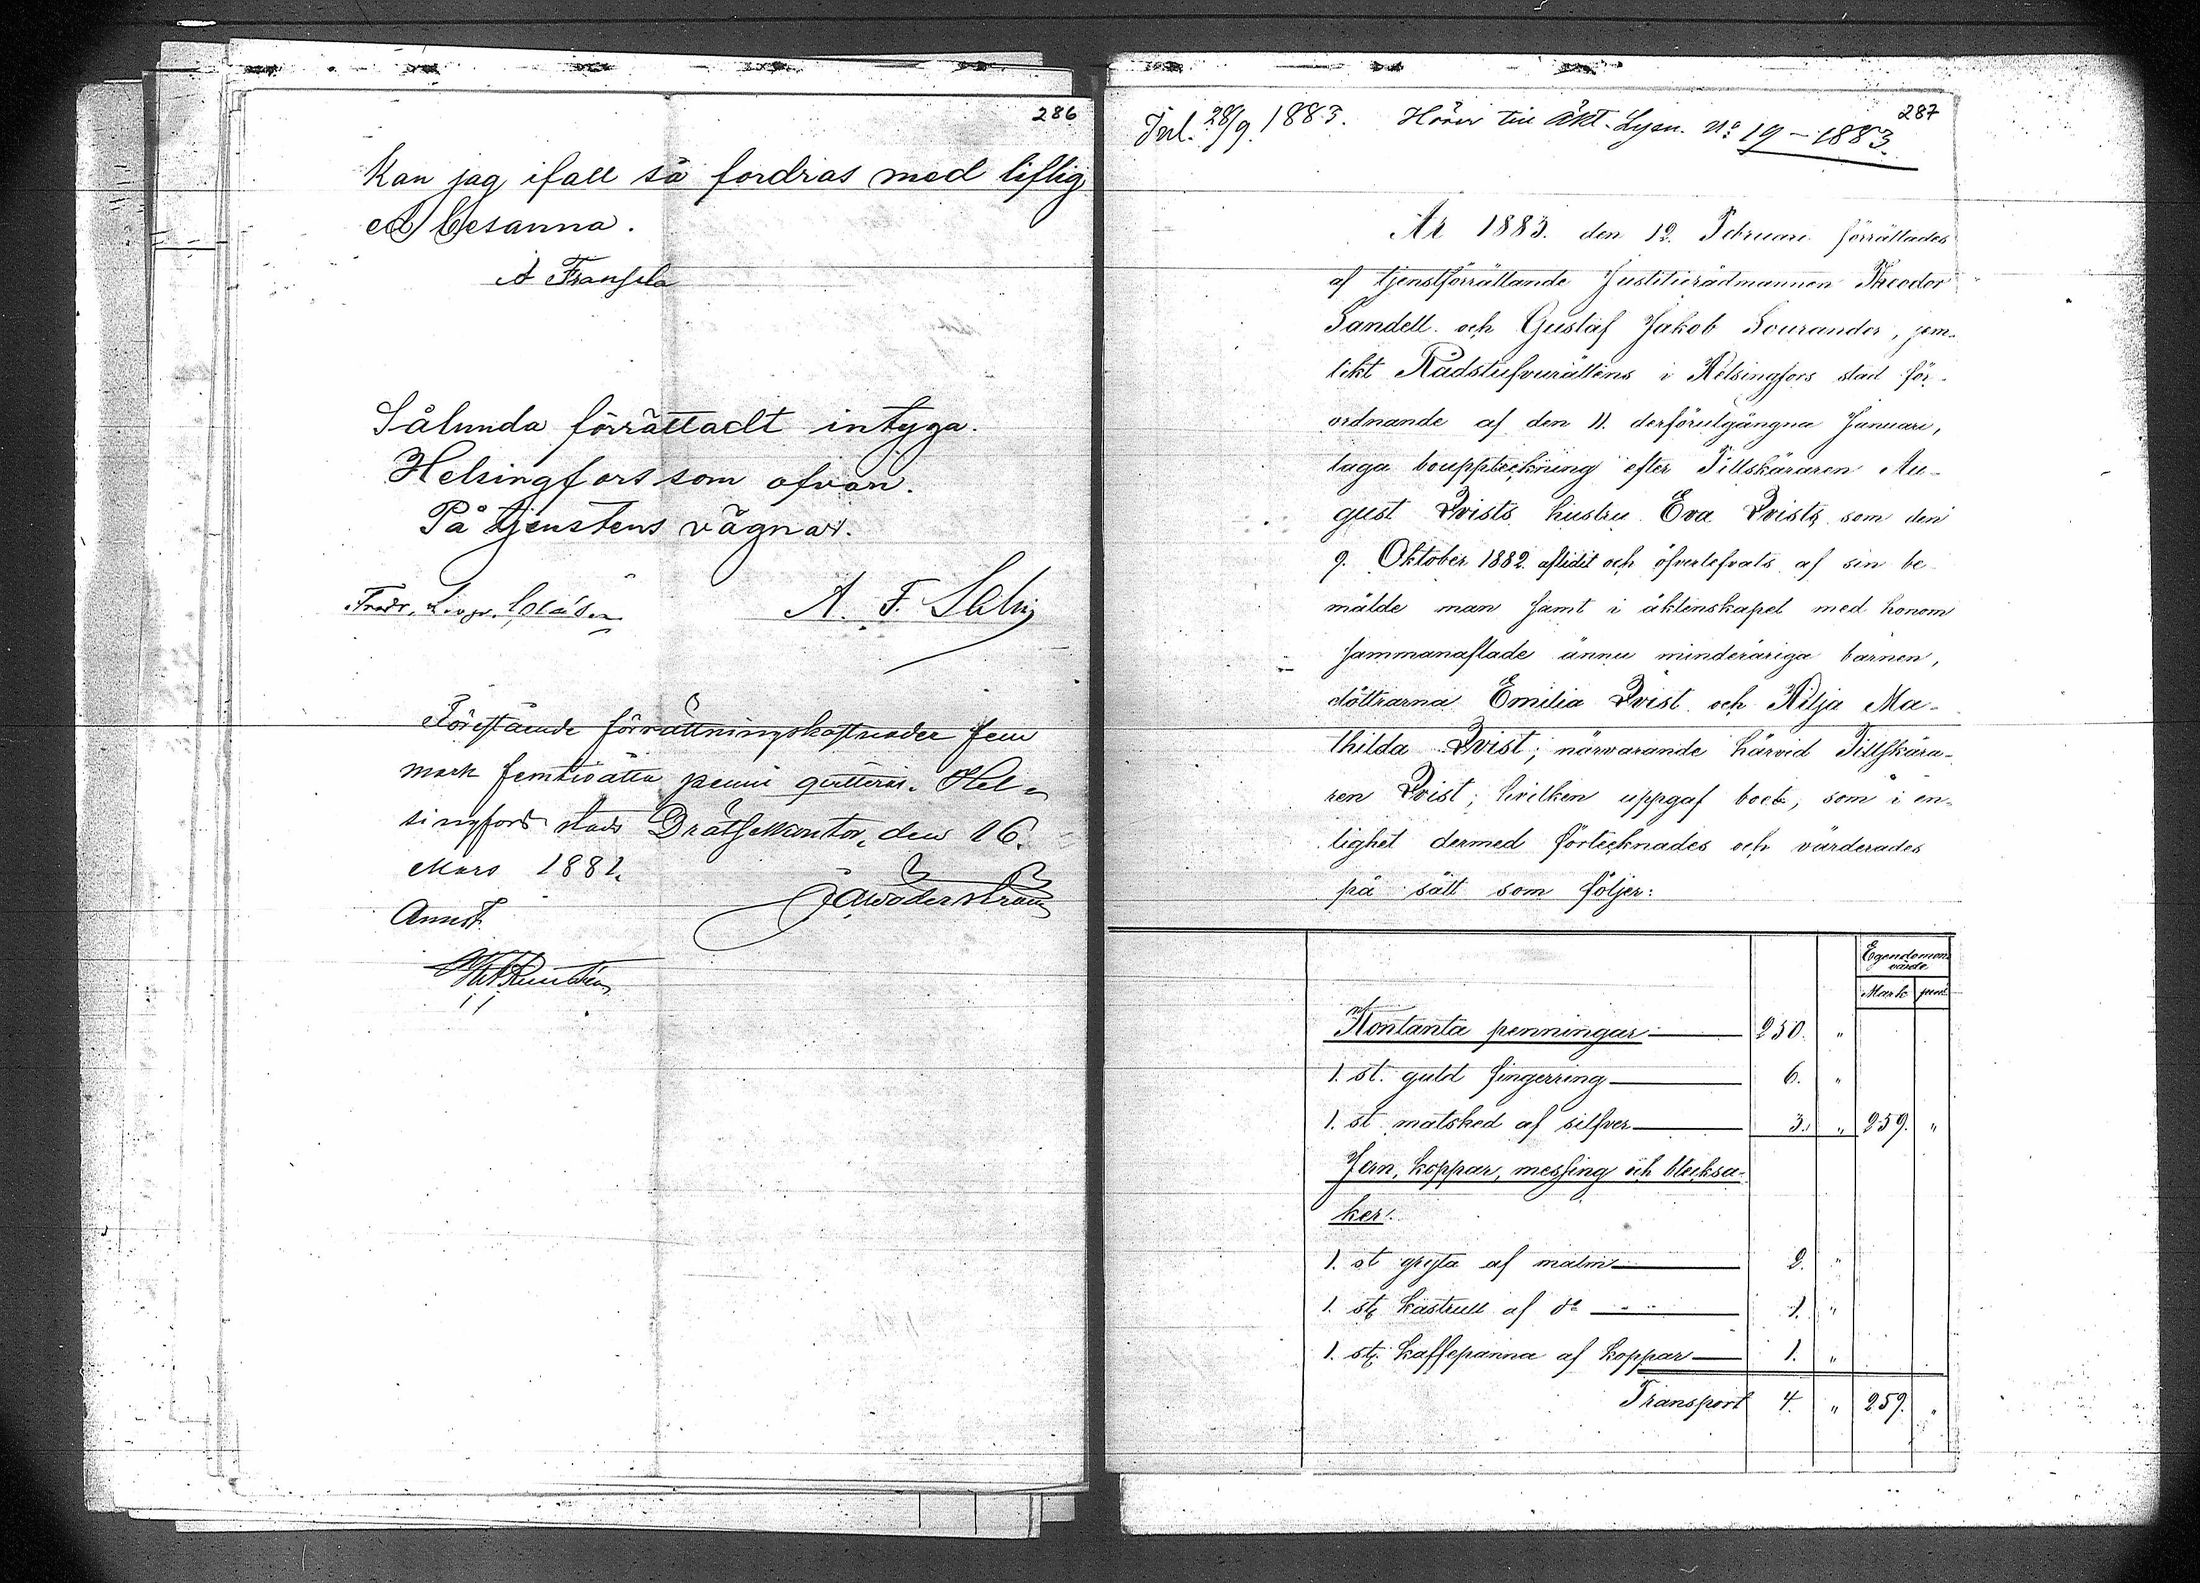 286
Kan jag ifall så fordras med liflig
ed besanna.
A Fransila
Sålunda förrättadt intyga.
Helsingfors som ofvan.
På tjenstens vägnar.
A. F.
Förestående förrättningskostnader fem
mark femtioåtta penni qvitteras. Hel-
singfors stads Drätselkontor, den 16.
Mars 1882.
Annot.
287
Inl. 28/9. 1883. Hörer till Äkt. Lysn. No 19-1883.
År 1883. den 12. Februari förrättades
af tjenstförrättande Justitierådmannen Theodor
Sandell och Gustaf Jakob Sourander, jem-
likt Rådstufvurättens i Helsingfors stad för-
ordnande af den 11. derförutgångna Januari,
laga bouppteckning efter Tillskäraren Au-
gust Qvists hustru Eva Qvist, som den
9. Oktober 1882. aflidit och öfverlefvats af sin be-
mälde man samt i äktenskapet med honom
sammanaflade ännu minderåriga barnen,
döttrarna Emilia Qvist och Hilja Ma-
thilda Qvist; närvarande härvid Tillskära-
ren Qvist; hvilken uppgaf boet, som i en-
lighet dermed förtecknades och värderades
på sätt som följer:
Egendomens
värde.
Mark penni
Kontanta penningar 250. "
1. st. guld fingerring 6. "
1. st matsked af silfver 3. " 259. "
Jern, koppar, messing och blecksa-
ker:
1. st gryta af malm 2. "
1. st, kastrull af do 1. "
1. st, kaffepanna af koppar 1. "
Transport 4. " 259. "